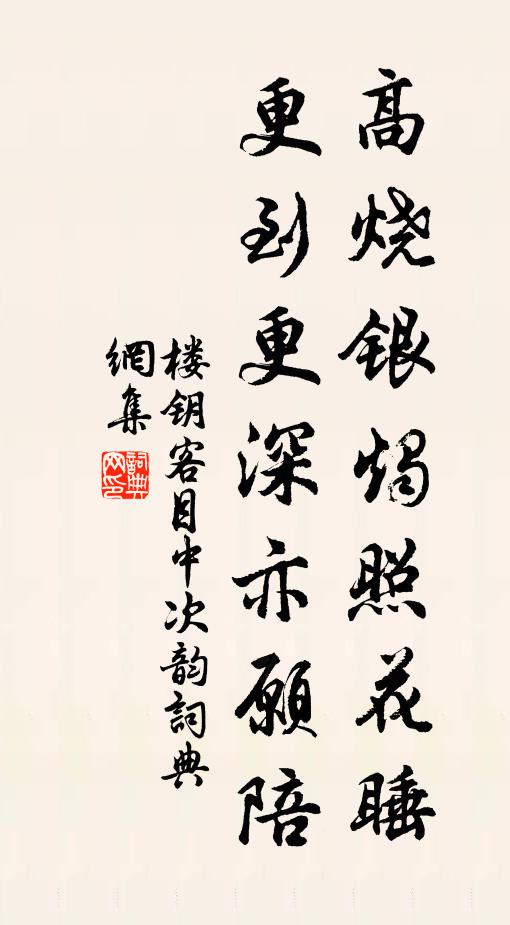 高烧银烛照花睡
更到更深亦愿陪
楼钥客目中次韵詞典
網集
詞典網印